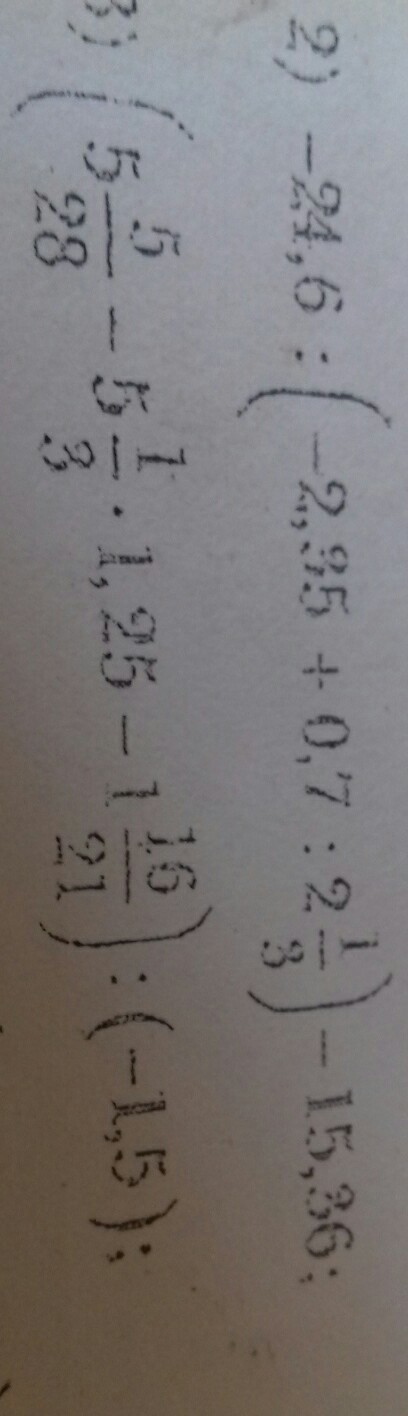 2) −24,6 : (−2,35 + 0,7 : 2 1/3) − 15,36;
3) (5 5/28 − 5 1/3 · 1,25 − 1 16/21) : (−1,5);